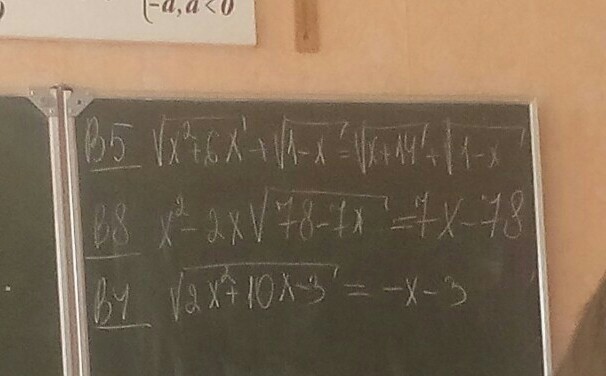 -a, a < 0
B5 √(x²+6x) + √(1-x) = √(x+14) + √(1-x)
B8 x² - 2x√(78-7x) = 7x - 78
B4 √(2x²+10x-3) = -x-3